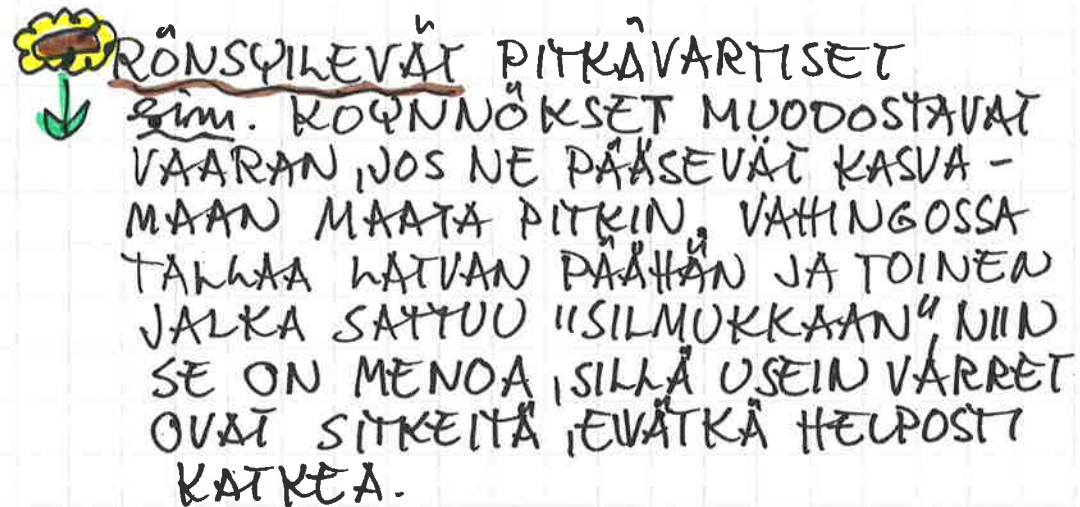 RÖNSYILEVÄT PITKÄVARTISET
esim. KÖYNNÖKSET MUODOSTAVAT
VAARAN, JOS NE PÄÄSEVÄT KASVA-
MAAN MAATA PITKIN. VAHINGOSSA
TALLAA LATVAN PÄÄHÄN JA TOINEN
JALKA SATTUU "SILMUKKAAN", NIIN
SE ON MENOA, SILLÄ USEIN VARRET
OVAT SITKEITÄ, EIVÄTKÄ HELPOSTI
KATKEA.